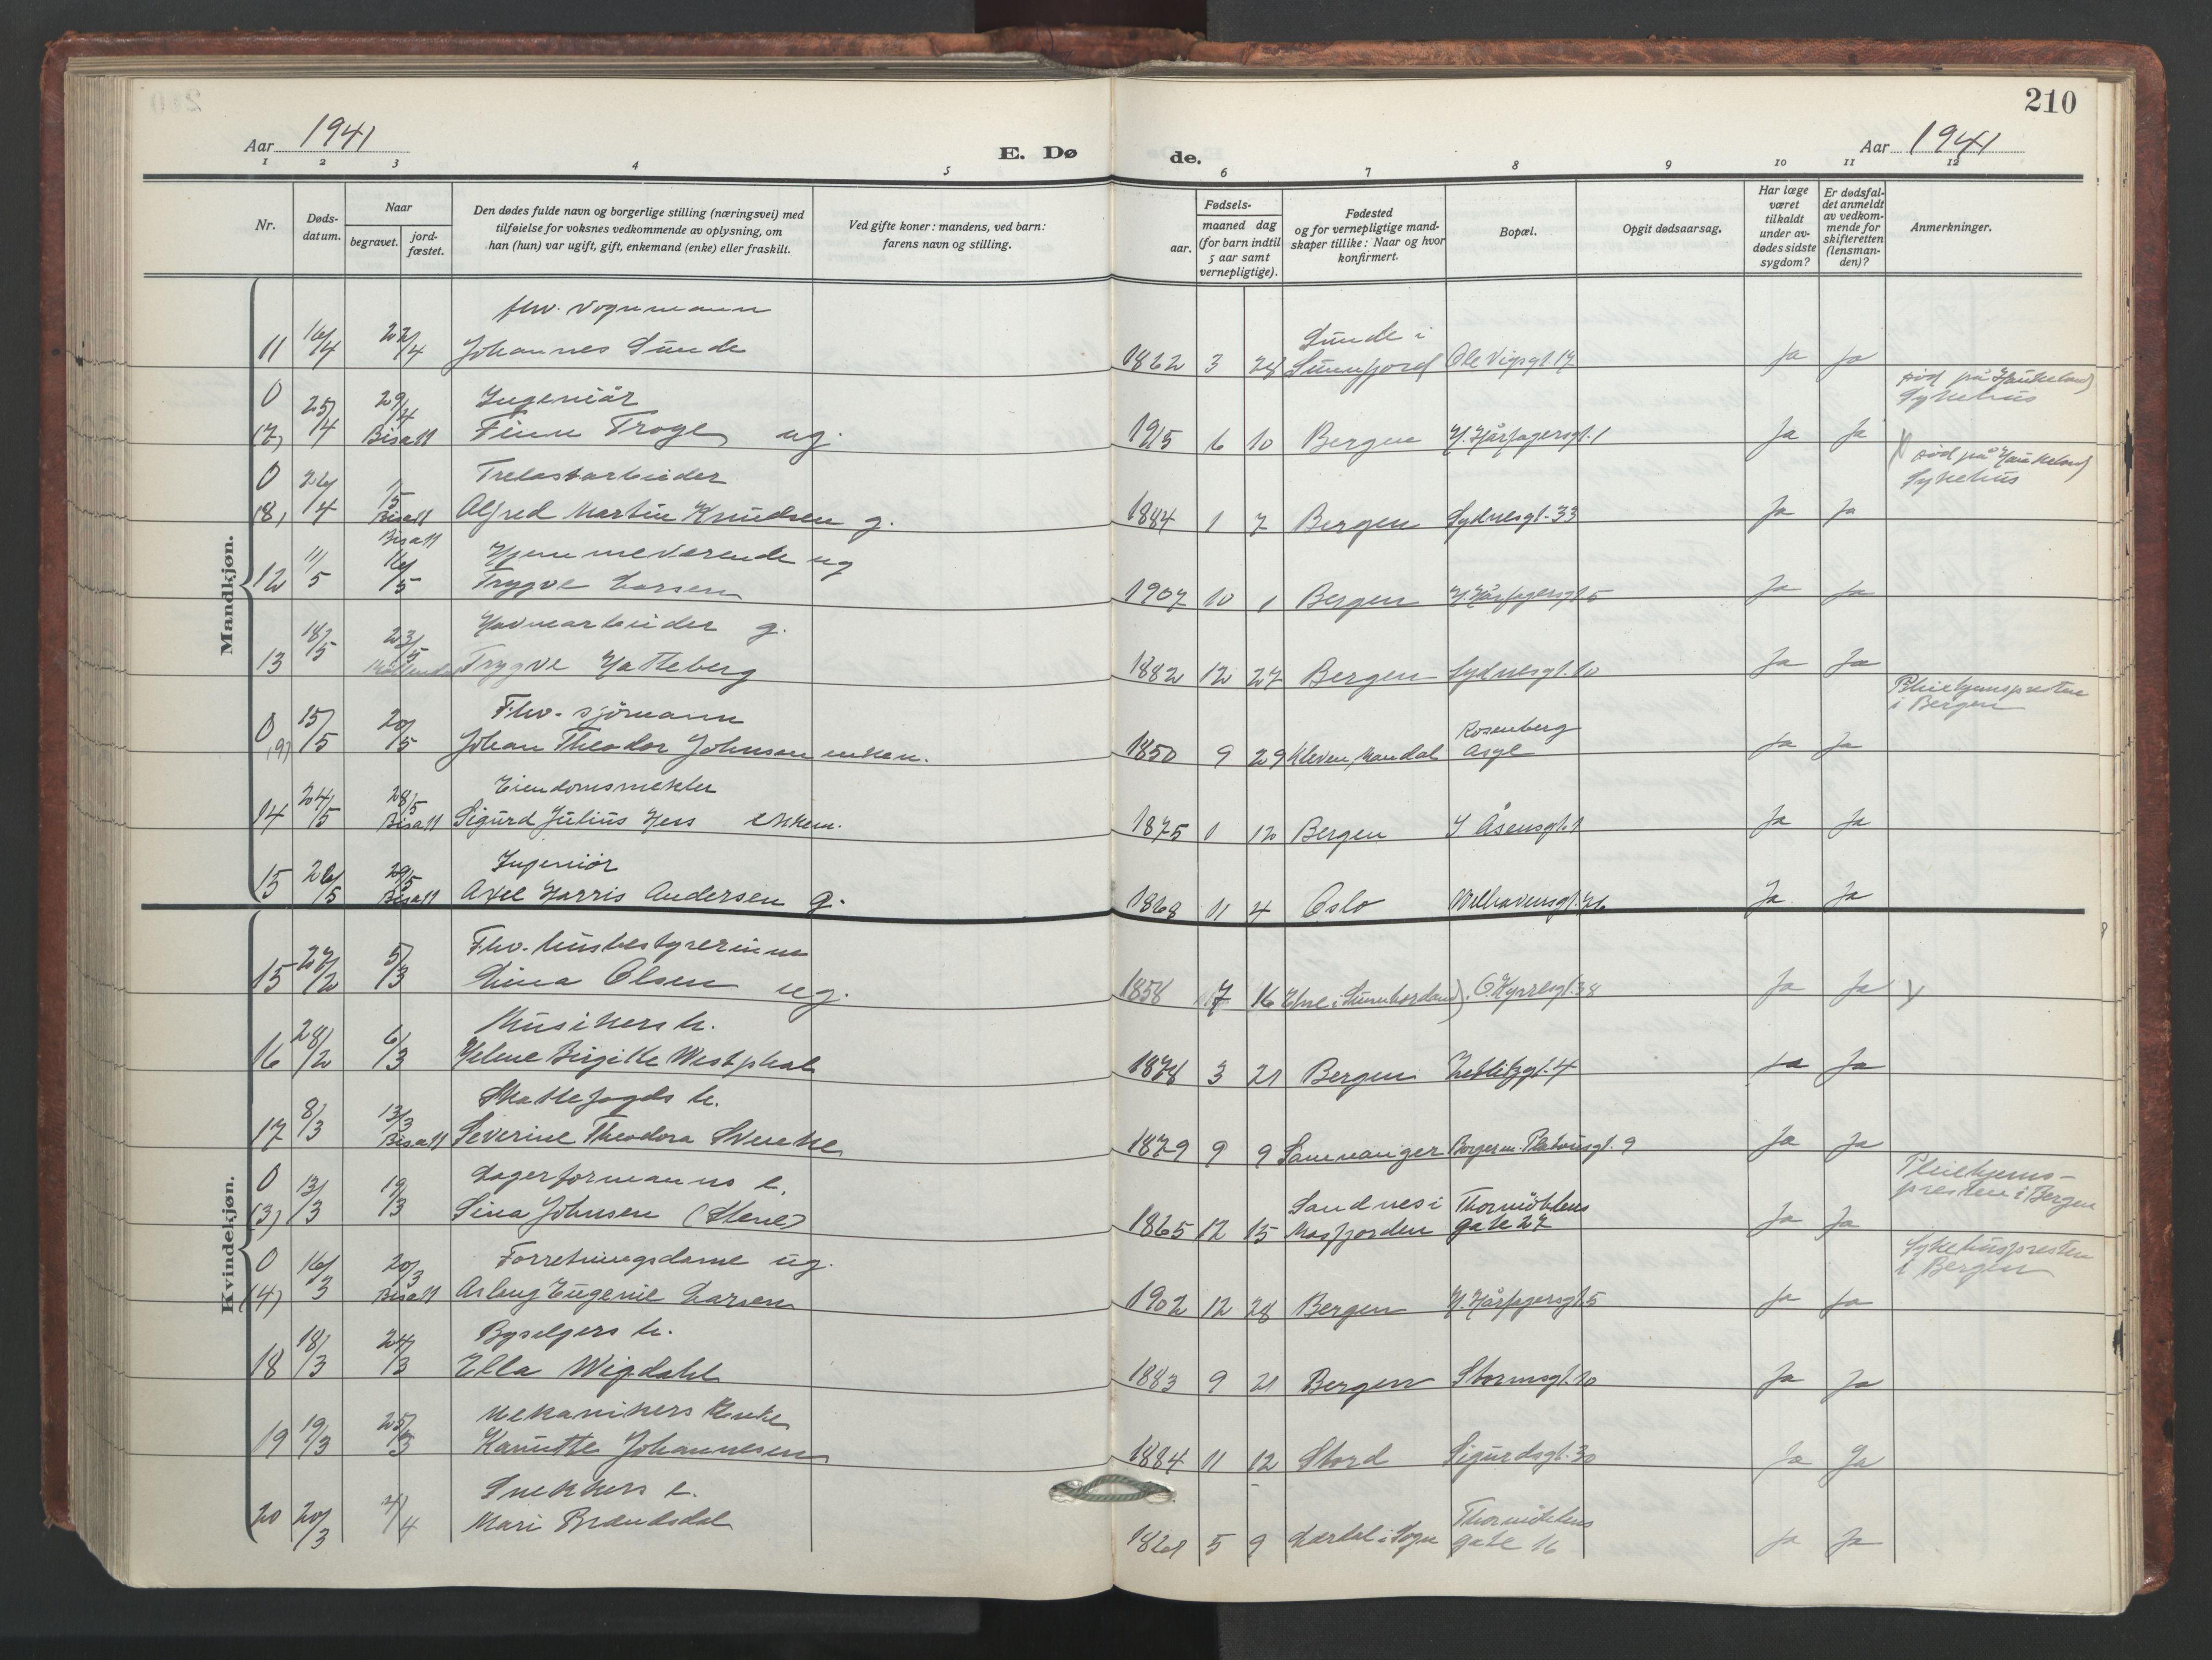 210
Aar 1941
E. Dø
de.
Aar 1941
1 2 3 4 5 6 7 8 9 10 11 12
Nr.
Døds-
datum.
Naar
begravet.
jord-
fæstet.
Den dødes fulde navn og borgerlige stilling (næringsvei) med
tilføielse for voksnes vedkommende av oplysning, om
han (hun) var ugift, gift, enkemand (enke) eller fraskilt.
Ved gifte koner: mandens, ved barn:
farens navn og stilling.
aar.
Fødsels-
maaned dag
(for barn indtil
5 aar samt
vernepligtige).
Fødested
og for vernepligtige mand-
skaper tillike: Naar og hvor
konfirmert.
Bopæl.
Opgit dødsaarsag.
Har læge
været
tilkaldt
under av-
dødes sidste
sygdom?
Er dødsfal-
det anmeldt
av vedkom-
mende for
skifteretten
(lensman-
den)?
Anmerkninger.
Mandkjøn.
fhv. vognmann
11 16/4 22/4 Johannes Sunde 1862 3 28 Sunde i Sunnfjord Ole Vigsgt. 17 Ja Ja
Død på Haukeland
Sykehus
0 25/4 29/4 Ingeniør
(7) Bisatt Finn Troye ug. 1915 6 10 Bergen H. Hårfagersgt. 1 Ja Ja
Død på Haukeland
Sykehus
0 26/4 1/5 Trelastarbeider
(8) Bisatt Alfred Martin Knudsen g. 1884 1 7 Bergen Sydnesgt. 33 Ja Ja
Bisatt
Hjemmeværende ug
12 11/5 16/5 Trygve Larsen 1907 10 1 Bergen H. Hårfagersgt 5 Ja Ja
Havnearbeider g.
13 18/5 23/5 Trygve Hatleberg 1882 12 27 Bergen Sydnesgt. 10 Ja Ja
Pleiehjemspresten
i Bergen
Fhv. sjømann
0 (9) 15/5 20/5 Johan Theodor Johnsen enkem. 1850 9 29 Kleven, Mandal Rosenberg Asyl Ja Ja
Eiendomsmekler
14 24/5 28/5 Bisatt Sigurd Julius Hess enkem. 1875 1 12 Bergen I Åsensgt. 1 Ja Ja
Ingeniør
15 26/5 29/5 Bisatt Axel Harris Andersen g. 1868 11 4 Oslo Welhavensgt. 76 Ja Ja
Kvindekjøn.
Fhv. husbestyrerinne
15 27/2 5/3 Lina Olsen ug. 1858 7 16 Etne i Sunnhordland O. Kyrresgt. 38 Ja Ja
Musikers h.
16 28/2 6/3 Helene Birgitte Westphal 1878 3 21 Bergen Zetlitzgt. 4 Ja Ja
Skattefogds h.
17 8/3 13/3 Bisatt Severine Theodora 1879 9 9 Samnanger Borgerm. Platousgt. 9 Ja Ja
Pleiehjems-
presten i Bergen
0 Lagerformanns e.
(3) 13/3 19/3 Sina Johnsen (Stene) 1865 12 15 Sandnes i Masfjorden Thormøhlens gate 27 Ja Ja
Sykehuspresten
i Bergen
0 Forretningsdame ug.
(4) 16/3 20/3 Bisatt Aslaug Eugenie Larsen 1902 12 28 Bergen H. Hårfagersgt 5 Ja Ja
Byselgers h.
18 18/3 24/3 Ella Wigdahl 1883 9 21 Bergen Stormsgt. 10 Ja Ja
Mekanikers Enke
19 19/3 25/3 Kanutte Johannesen 1884 11 12 Stord Sigurdsgt. 30 Ja Ja
Snekkers e.
20 20/3 4/4 Mari Brandsdal 1861 5 9 Lærdal i Sogn Thormøhlens gate 16 Ja Ja